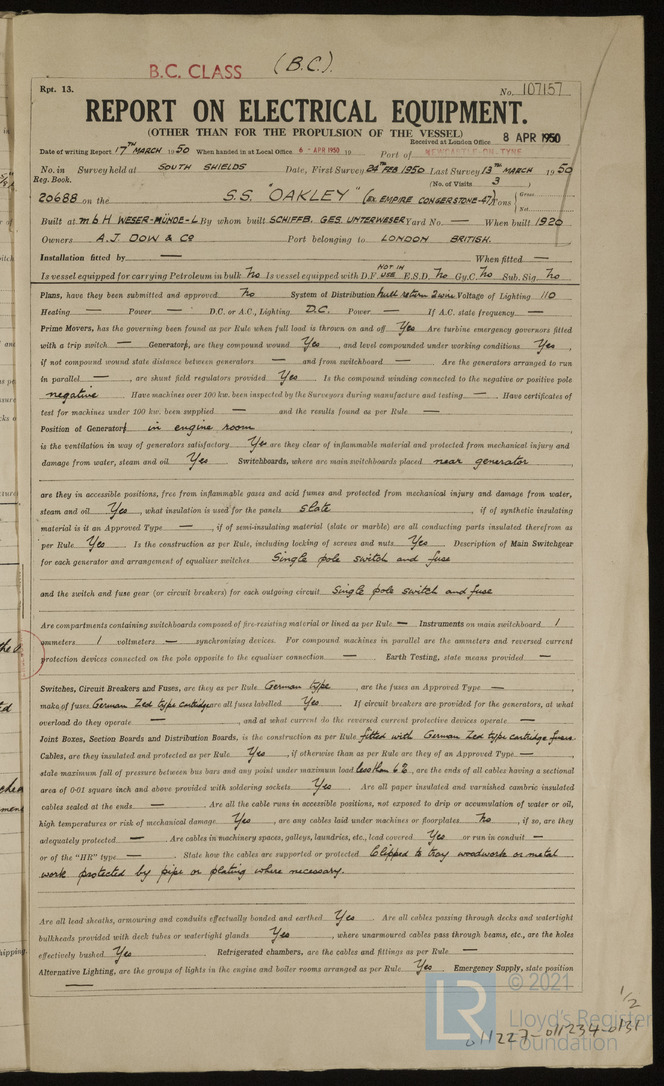 B.C. CLASS (B.C.).
Rpt. 13. No. 107157
REPORT ON ELECTRICAL EQUIPMENT.
(OTHER THAN FOR THE PROPULSION OF THE VESSEL)
Received at London Office 8 APR 1950
Date of writing Report 17TH MARCH 1950 When handed in at Local Office 6 - APR 1950 19 Port of NEWCASTLE-ON-TYNE
No. in Survey held at SOUTH SHIELDS Date, First Survey 24TH FEB 1950 Last Survey 13TH MARCH 1950
Reg. Book. (No. of Visits 3)
20688 on the S.S. "OAKLEY" (EX EMPIRE CONGERSTONE-47) Tons { Gross Net
Built at mbH WESER-MÜNDE-L By whom built SCHIFFB. GES. UNTERWESER Yard No. — When built 1920
Owners A.J. DOW & CO Port belonging to LONDON BRITISH.
Installation fitted by — When fitted —
Is vessel equipped for carrying Petroleum in bulk No Is vessel equipped with D.F. NOT IN USE E.S.D. No Gy.C. No Sub. Sig. No
Plans, have they been submitted and approved No System of Distribution hull return 2 wire Voltage of Lighting 110
Heating — Power — D.C. or A.C., Lighting D.C. Power — If A.C. state frequency —
Prime Movers, has the governing been found as per Rule when full load is thrown on and off Yes Are turbine emergency governors fitted
with a trip switch — Generators, are they compound wound Yes, and level compounded under working conditions Yes,
if not compound wound state distance between generators — and from switchboard — Are the generators arranged to run
in parallel —, are shunt field regulators provided Yes Is the compound winding connected to the negative or positive pole
negative Have machines over 100 kw. been inspected by the Surveyors during manufacture and testing — Have certificates of
test for machines under 100 kw. been supplied — and the results found as per Rule —
Position of Generators in engine room
is the ventilation in way of generators satisfactory Yes are they clear of inflammable material and protected from mechanical injury and
damage from water, steam and oil Yes Switchboards, where are main switchboards placed near generator
are they in accessible positions, free from inflammable gases and acid fumes and protected from mechanical injury and damage from water,
steam and oil Yes, what insulation is used for the panels slate, if of synthetic insulating
material is it an Approved Type —, if of semi-insulating material (slate or marble) are all conducting parts insulated therefrom as
per Rule Yes Is the construction as per Rule, including locking of screws and nuts Yes Description of Main Switchgear
for each generator and arrangement of equaliser switches Single pole switch and fuse
and the switch and fuse gear (or circuit breakers) for each outgoing circuit Single pole switch and fuse
Are compartments containing switchboards composed of fire-resisting material or lined as per Rule — Instruments on main switchboard 1
ammeters 1 voltmeters — synchronising devices. For compound machines in parallel are the ammeters and reversed current
protection devices connected on the pole opposite to the equaliser connection — Earth Testing, state means provided —
Switches, Circuit Breakers and Fuses, are they as per Rule German type, are the fuses an Approved Type —
make of fuses German Zed type cartridge are all fuses labelled Yes If circuit breakers are provided for the generators, at what
overload do they operate —, and at what current do the reversed current protective devices operate —
Joint Boxes, Section Boards and Distribution Boards, is the construction as per Rule fitted with German Zed type cartridge fuses.
Cables, are they insulated and protected as per Rule Yes, if otherwise than as per Rule are they of an Approved Type —
state maximum fall of pressure between bus bars and any point under maximum load less than 6%, are the ends of all cables having a sectional
area of 0·01 square inch and above provided with soldering sockets Yes Are all paper insulated and varnished cambric insulated
cables sealed at the ends — Are all the cable runs in accessible positions, not exposed to drip or accumulation of water or oil,
high temperatures or risk of mechanical damage Yes, are any cables laid under machines or floorplates No, if so, are they
adequately protected — Are cables in machinery spaces, galleys, laundries, etc., lead covered Yes or run in conduit —
or of the "HR" type — State how the cables are supported or protected Clipped to tray woodwork or metal
work protected by pipe or plating where necessary.
Are all lead sheaths, armouring and conduits effectually bonded and earthed Yes Are all cables passing through decks and watertight
bulkheads provided with deck tubes or watertight glands Yes, where unarmoured cables pass through beams, etc., are the holes
effectively bushed Yes Refrigerated chambers, are the cables and fittings as per Rule —
Alternative Lighting, are the groups of lights in the engine and boiler rooms arranged as per Rule Yes Emergency Supply, state position
—
© 2021
LR Lloyd's Register
Foundation
1/2
011227-011234-0131